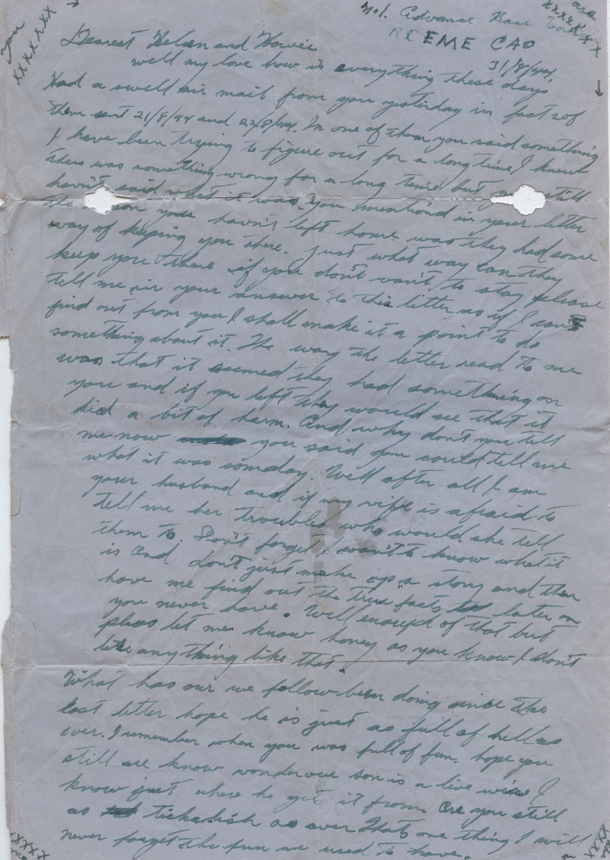 you
xxxxxxx
No 1. Advance Base
RCEME CAO
31/8/44.
xxxxx
xxxx
Dearest Helen and Howie
well my love how is everything these days
Had a swell air mail from you yesterday in fact 2 of
them sent 21/8/44 and 22/8/44. In one of them you said something
I have been trying to figure out for a long time, I knew
there was something wrong for a long time but still
havn't said what it was, you mentioned in your letter
the your havn't left home was they had some
way of keeping you there. Just what way can they
keep you there if you don't want to stay please
tell me in your answer to this letter as if I can
find out from you I shall make it a point to do
something about it. The way the letter read to me
was that it seemed they had something on
you and if you left they would see that it
did a bit of harm. And why don't you tell
me now you said you could tell me
what it was someday. Well after all I am
your husband and if my wife is afraid to
tell me her troubles who would she tell
them to. Don't forget I want to know what it
is and don't just make up a story and then
have me find out the true facts later on
you never have. Well enough of that but
pleas let me know honey as you know I don't
like anything like that.
What has our wee follow been doing since the
last letter hope he is just as full of hell as
ever. I remember when you was full of fun, hope you
still are know wonder our son is a live wire I
know just where he gets it from. Are you still
as tickelish as ever thats one thing I will
never forget the fun we used to have.
xxx
xxx